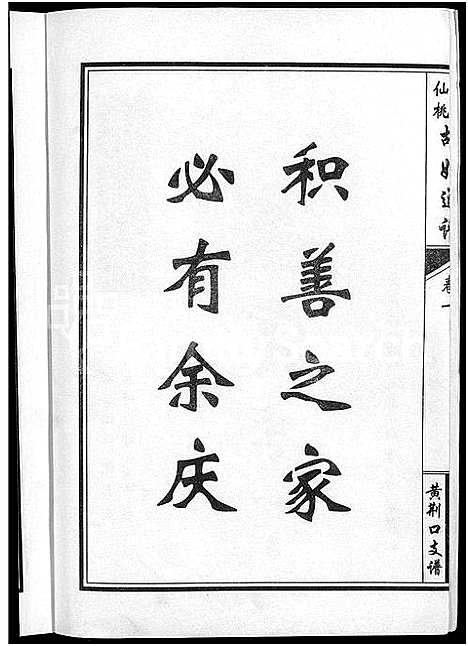 积善之家
必有余庆
仙桃古氏通谱
卷一
黄荆口支谱